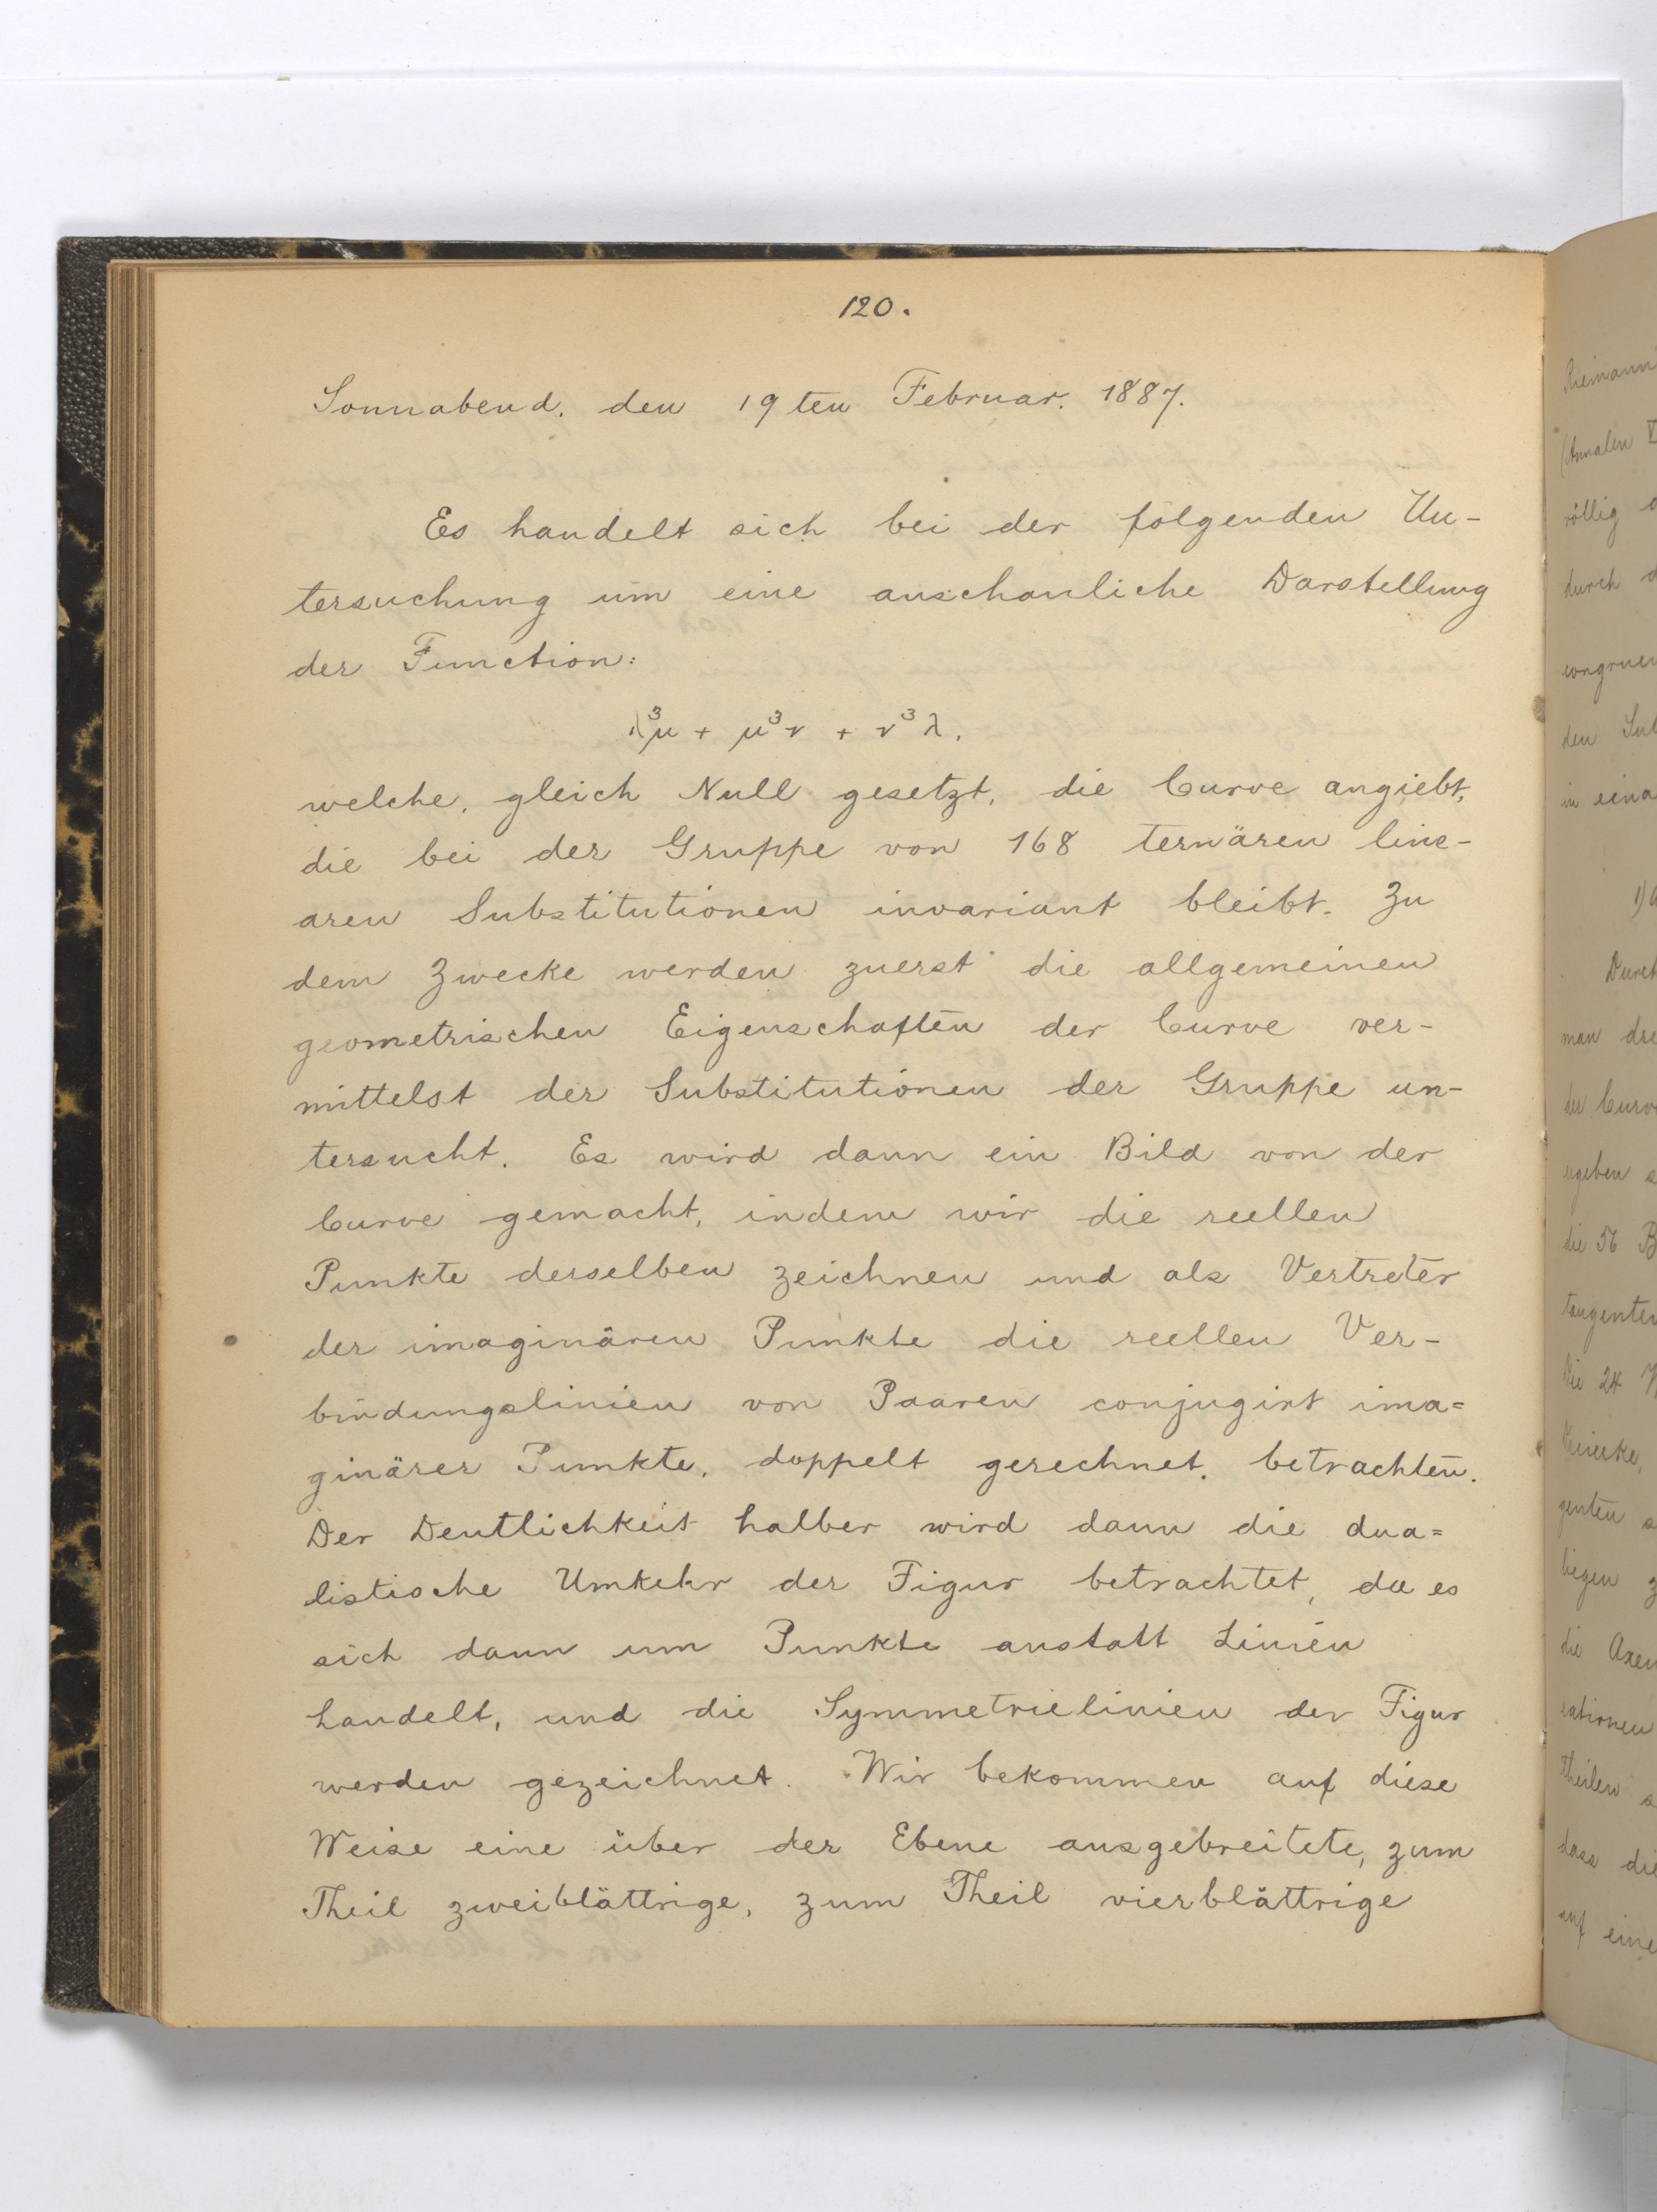 120.
Sonnabend, den 19ten Februar. 1887.
Es handelt sich bei der folgenden Un-
tersuchung um eine anschauliche Darstellung
der Function:
λ³μ + μ³ν + ν³λ,
welche, gleich Null gesetzt, die Curve angiebt,
die bei der Gruppe von 168 ternären line-
aren Substitutionen invariant bleibt. Zu
dem Zwecke werden zuerst die allgemeinen
geometrischen Eigenschaften der Curve ver-
mittelst der Substitutionen der Gruppe un-
tersucht. Es wird dann ein Bild von der
Curve gemacht, indem wir die reellen
Punkte derselben zeichnen und als Vertreter
der imaginären Punkte die reellen Ver-
bindungslinien von Paaren conjugirt ima=
ginärer Punkte, doppelt gerechnet, betrachten.
Der Deutlichkeit halber wird dann die dua=
listische Umkehr der Figur betrachtet, da es
sich dann um Punkte anstatt Linien
handelt, und die Symmetrielinien der Figur
werden gezeichnet. Wir bekommen auf diese
Weise eine über der Ebene ausgebreitete, zum
Theil zweiblättrige, zum Theil vierblättrige
Riemann
(Annalen
völlig
durch
den
in
1)
Durch
man
der Curv
ergeben
die 56 B
tangenten
Die 24
genten
liegen
die Axen
Theilen
dass die
auf eine